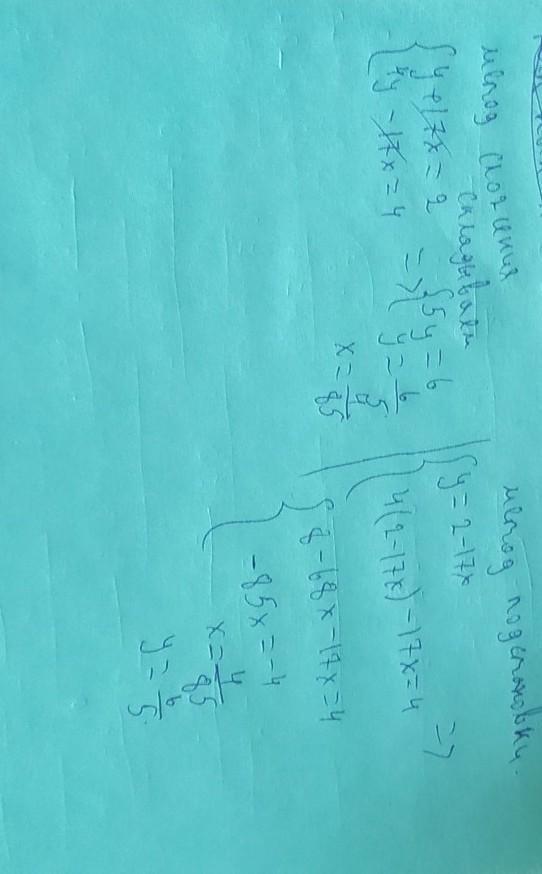 метод сложения
складываем
{ y + 17x = 2
{ 4y - 17x = 4 => { 5y = 6
y = 6/5
x = 4/85
метод подстановки.
{ y = 2 - 17x
{ 4(2 - 17x) - 17x = 4 =>
{ 8 - 68x - 17x = 4
- 85x = - 4
x = 4/85
y = 6/5